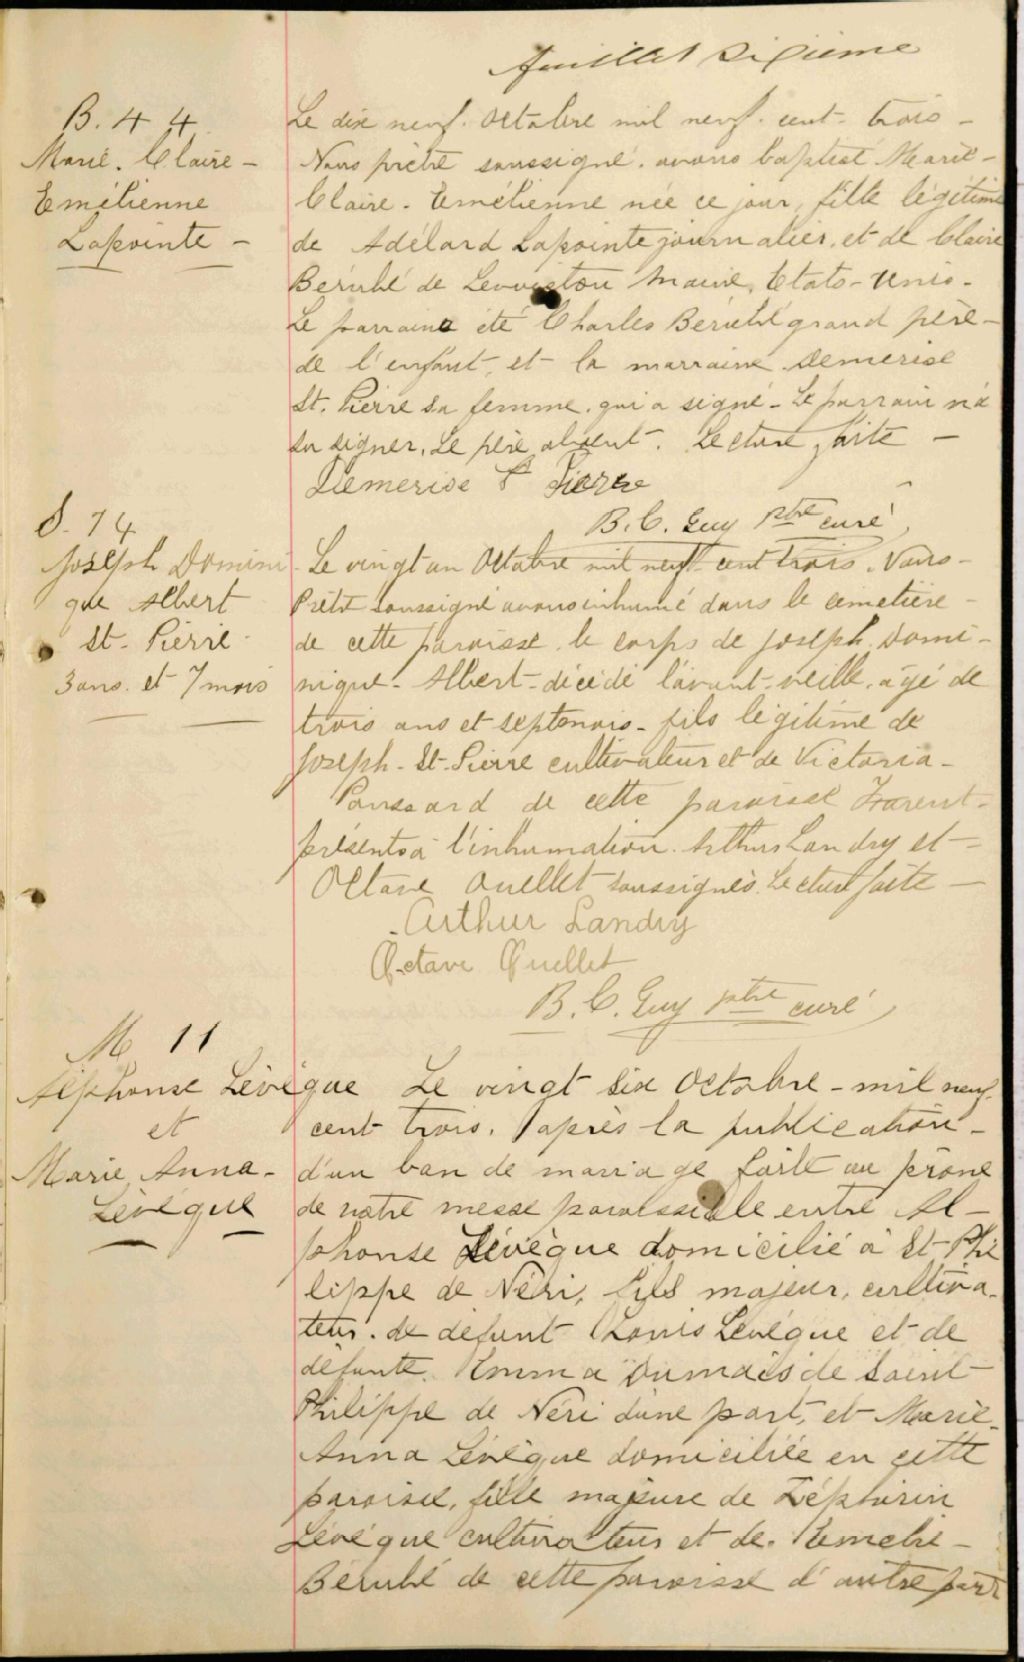 feuillet sixième
B. 44
Marie. Claire -
Emélienne
Lapointe -
Le dix neuf. Octobre mil neuf. cent. trois -
Nous prêtre soussigné. avons baptisé Marie -
Claire. Emélienne née ce jour, fille légitime
de Adélard Lapointe journalier, et de Claire
Bérubé de Lewiston Maine, Etats-Unis.
Le parrain a été Charles Bérubé grand père -
de l'enfant, et la marraine Demerise
St. Pierre sa femme. qui a signé - Le parrain n'a
su signer. Le père absent. Lecture faite -
Demerise St Pierre
B. C. Guy Ptre curé
S. 74
Joseph Domini
que Albert
St. Pierre
3 ans. et 7 mois
Le vingt un Octobre mil neuf cent trois. Nous -
Prêtre soussigné avons inhumé dans le cemetière -
de cette paroisse. le corps de Joseph. Domi -
nique - Albert - décédé l'avant-veille. agé de
trois ans et sept mois - fils légitime de
Joseph - St-Pierre cultivateur et de Victoria -
de cette paroisse
présents à l'inhumation. Arthur Landry et -
Octave Ouellet soussignés. Lecture faite -
Arthur Landry
Octave Ouellet
B. C. Guy ptre curé
M 11
Alphonse Lévêque
et
Marie Anna -
Lévêque
Le vingt six Octobre - mil neuf.
cent trois. après la publication -
d'un ban de mariage faite au prône
de notre messe paroissiale entre Al -
phonse Lévèque domicilié à St-Phi
lippe de Néri, fils majeur, cultiva -
teur. de défunt Louis Lévêque et de
défunte. Emma Dumais de Saint
Philippe de Néri d'une part, et Marie -
Anna Lévêque domiciliée en cette
paroisse, fille majeure de Zéphirin
Lévêque cultivateur et de.
Bérubé de cette paroisse d'autre part